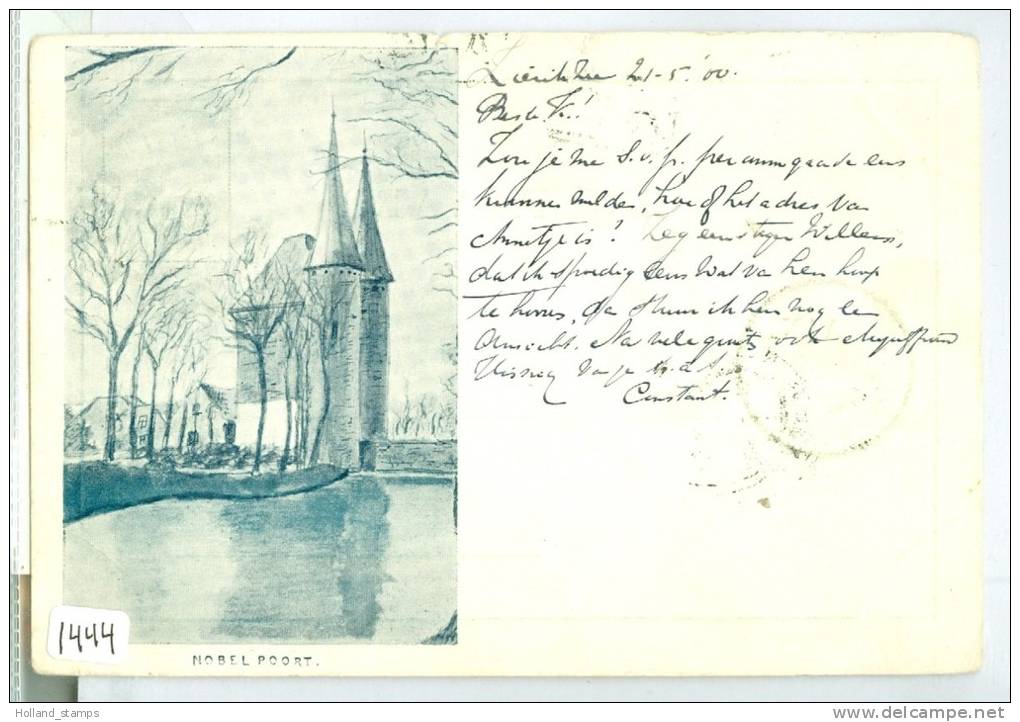 Zierikzee 21-5-'00.
Beste K!
Zou je me s.v.p. per omgaande eens
kunnen melden, hoe of het adres van
Annetje is? Zeg eens tegen Willem,
dat ik spoedig eens wat van hem hoop
te hooren, dan stuur ik hem nog een
ansicht. Na vele groeten, ook
van je
Constant.
1444
NOBELPOORT.
Holland_stamps
www.delcampe.net